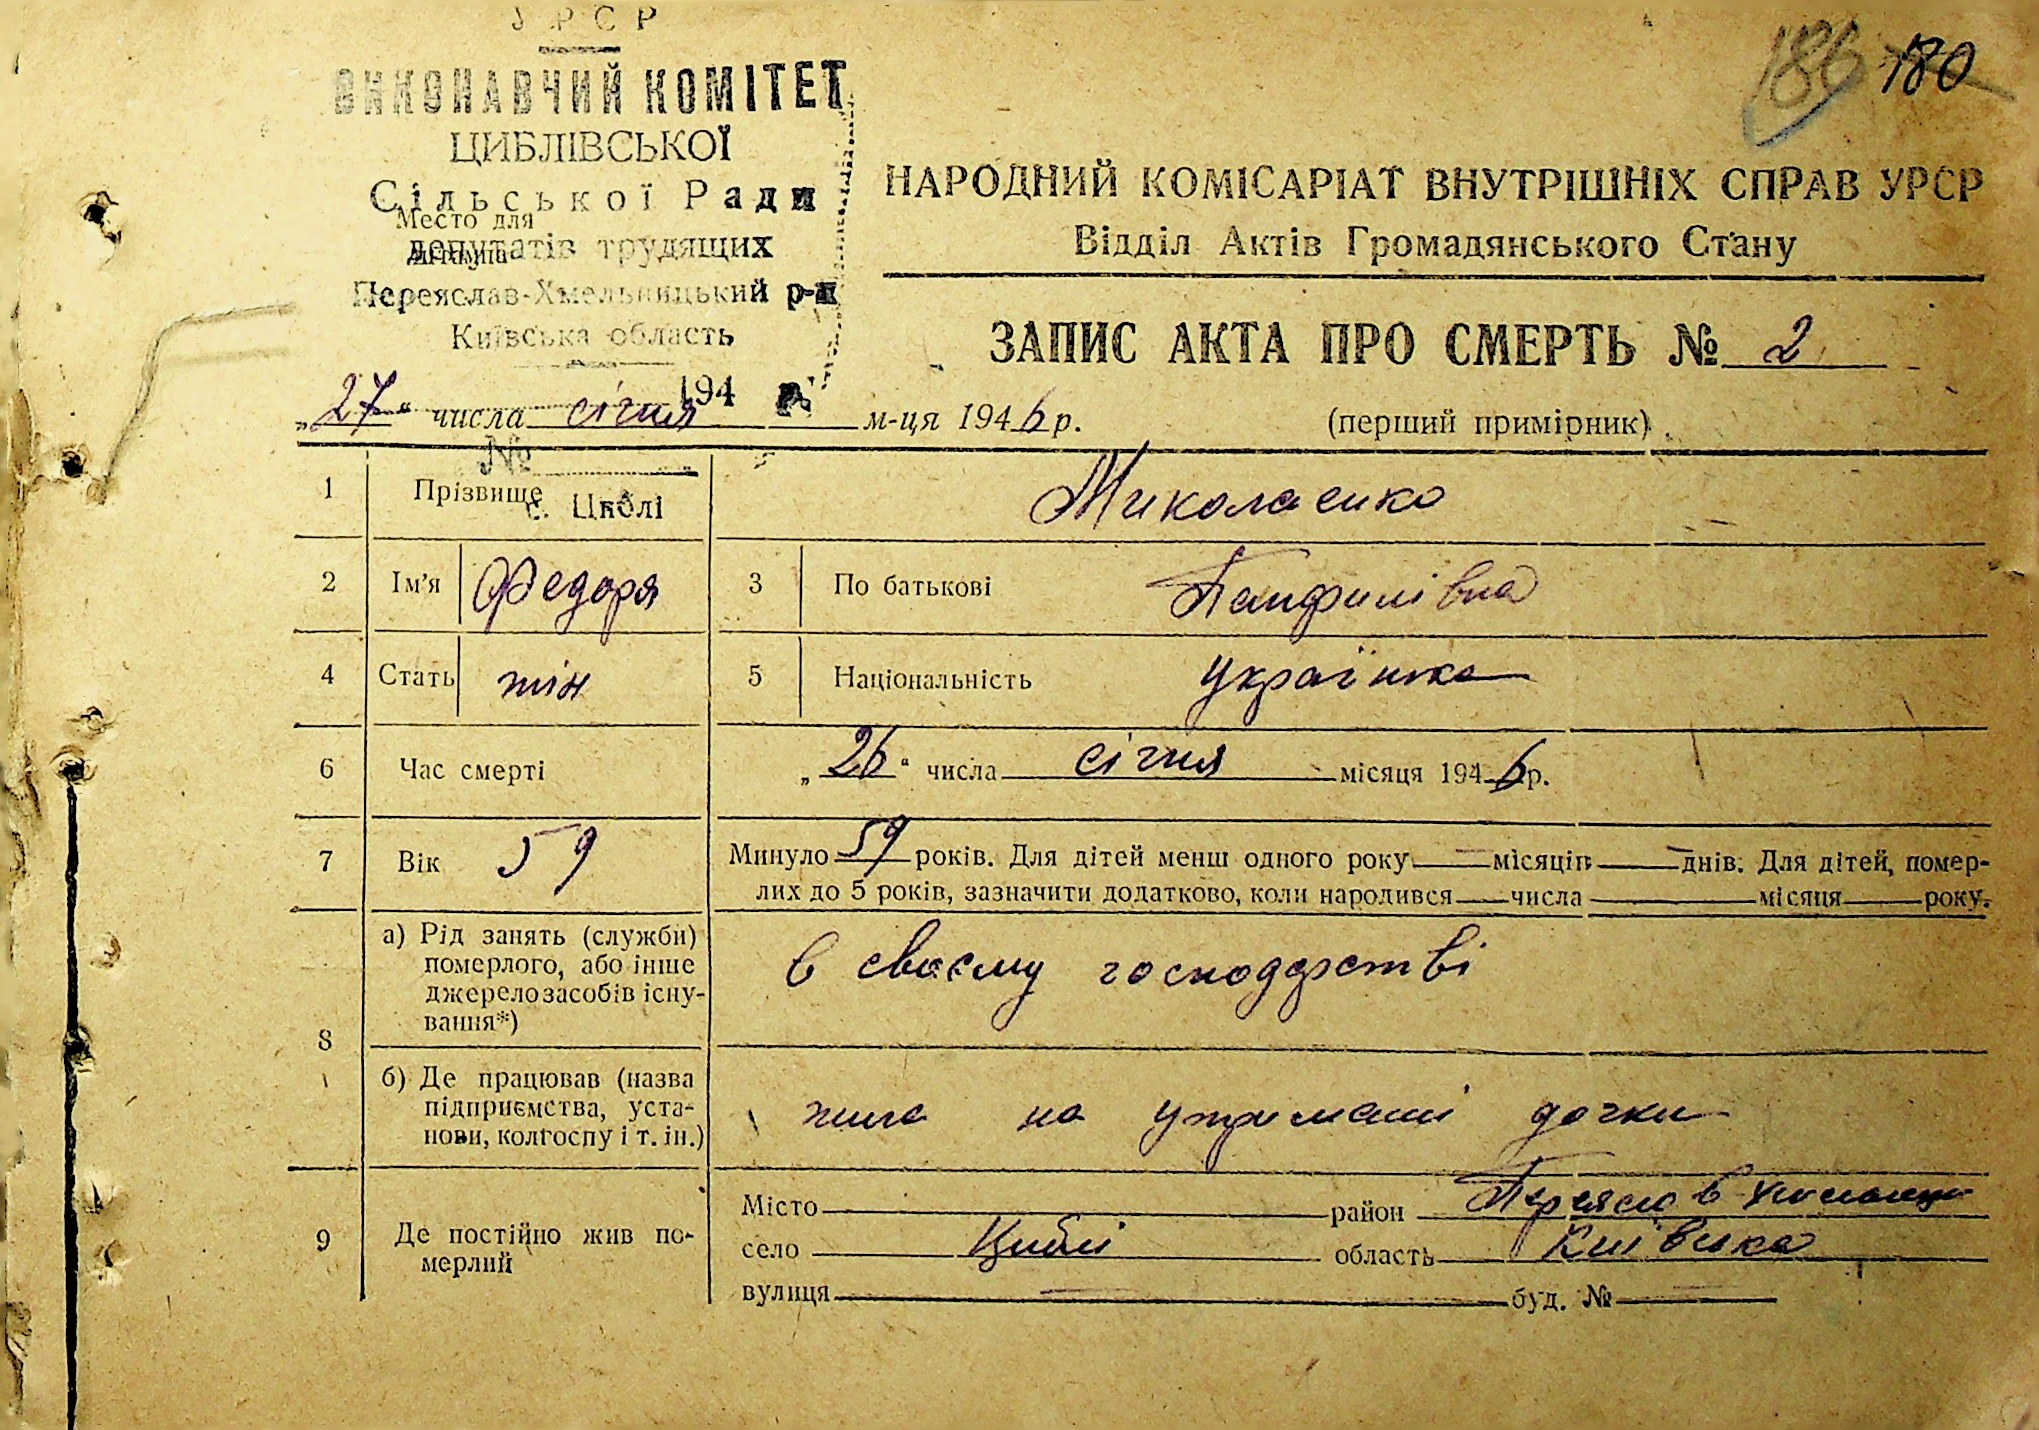 УРСР
ВИКОНАВЧИЙ КОМІТЕТ
ЦИБЛІВСЬКОЇ
Сільської Ради
Место для
штампа
депутатів трудящих
Переяслав-Хмельницький р-н
Київська область
194 р.
№
с. Циблі
186 180
НАРОДНИЙ КОМІСАРІАТ ВНУТРІШНІХ СПРАВ УРСР
Відділ Актів Громадянського Стану
ЗАПИС АКТА ПРО СМЕРТЬ № 2
„27“ числа січня м-ця 1946 р.
(перший примірник)
1 Прізвище Миколаенко
2 Ім'я Федоря 3 По батькові Панфилівна
4 Стать жін 5 Національність українка
6 Час смерті „26“ числа січня місяця 1946 р.
7 Вік 59 Минуло 59 років. Для дітей менш одного року — місяців — днів. Для дітей, помер-
лих до 5 років, зазначити додатково, коли народився числа місяця року.
8
а) Рід занять (служби)
померлого, або інше
джерело засобів існу-
вання*)
в своєму господарстві
б) Де працював (назва
підприємства, уста-
нови, колгоспу і т. ін.)
жила на утриманні дочки
9 Де постійно жив по-
мерлий
Місто район Переяслав Хмельниць
село Циблі область Київська
вулиця — буд. № —